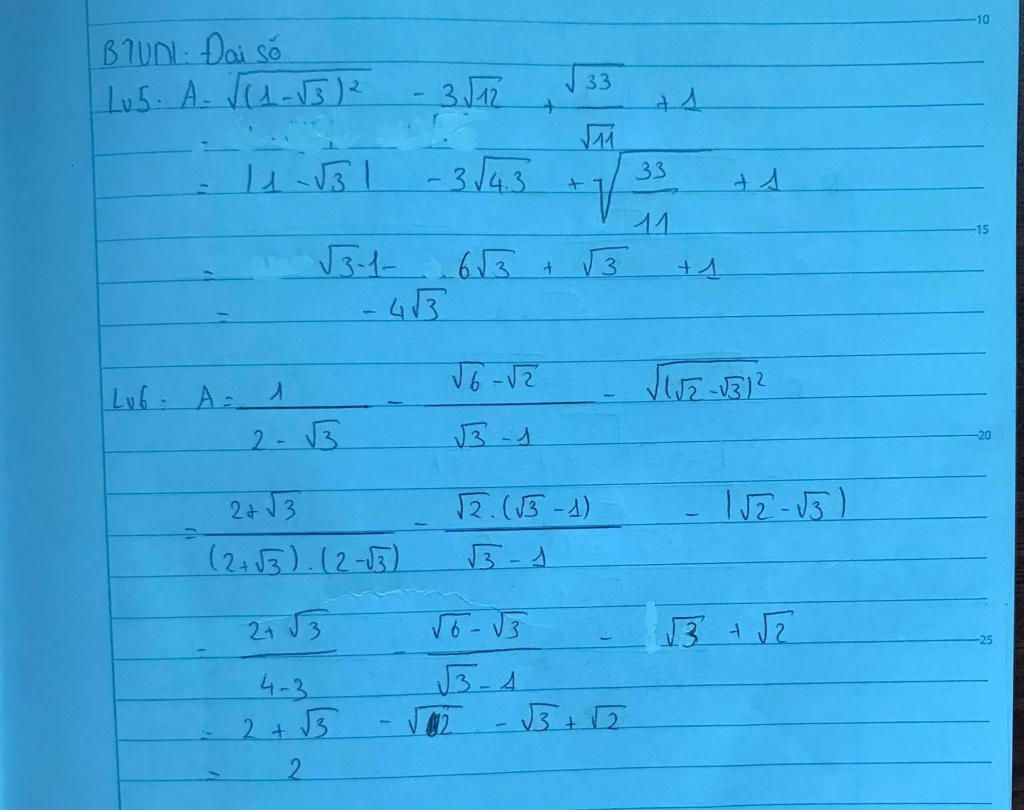 BTVN: Đại số
Lv5. A = √(1-√3)² - 3√12 + √33/√11 + 1
= |1-√3| - 3√4.3 + √33/11 + 1
= √3-1- 6√3 + √3 + 1
= -4√3
Lv6. A = 1/2-√3 - √6-√2/√3-1 - √(√2-√3)²
= 2+√3/(2+√3).(2-√3) - √2.(√3-1)/√3-1 - |√2-√3|
= 2+√3/4-3 - √6-√3/√3-1 - √3 + √2
= 2 + √3 - √2 - √3 + √2
= 2
10
15
20
25